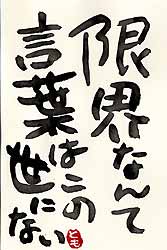 限界なんて
言葉はこの
世にない
とも